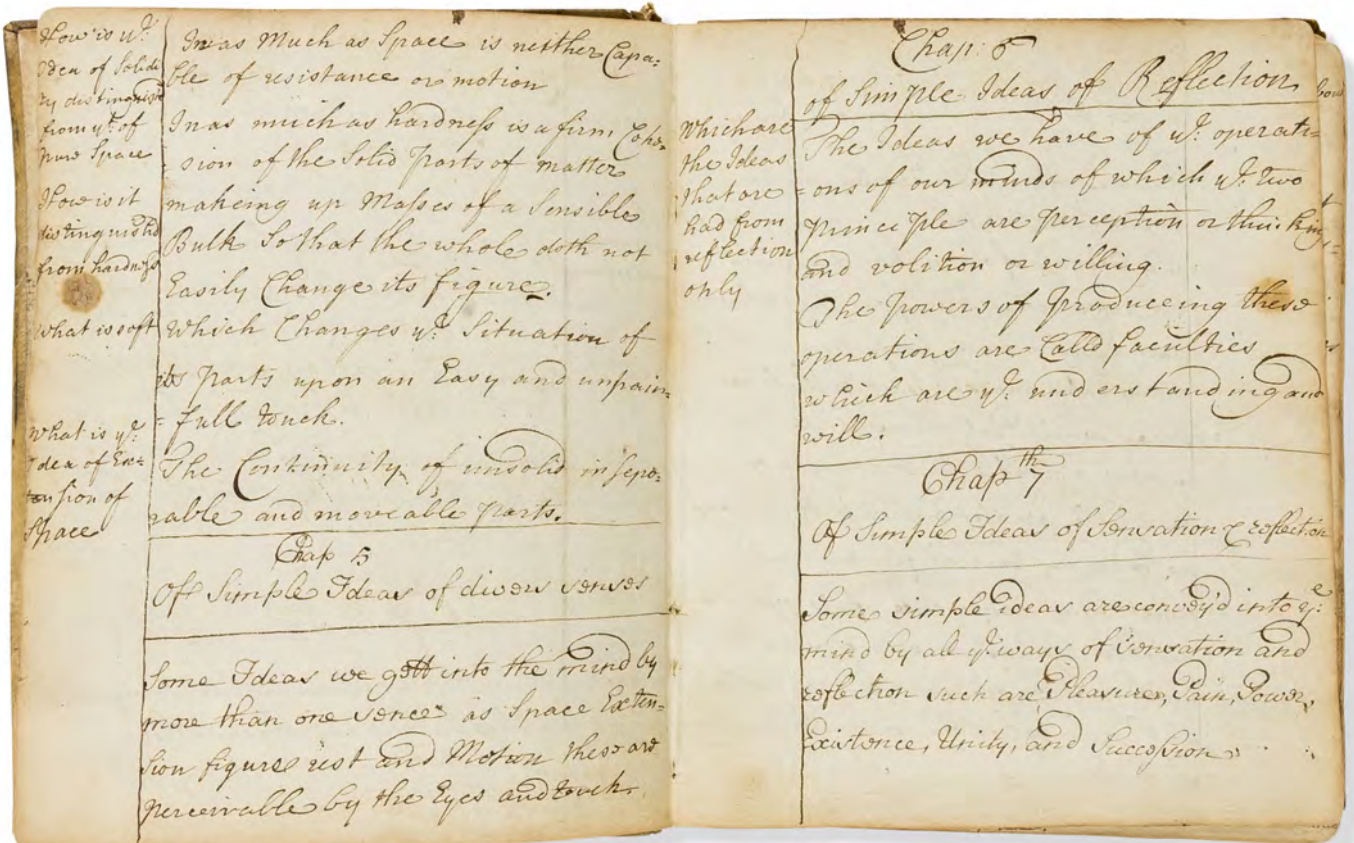 How is yᵉ
Idea of Solidi
ty distinguish
from yᵗ of
pure Space
In as Much as Space is neither Capa:
ble of resistance or motion
How is it
distinguishd
from hardness
In as much as hardness is a firm Cohe
- sion of the Solid parts of matter
makeing up Masses of a Sensible
Bulk So that the whole doth not
Easily Change its figure.
What is soft
Which Changes yᵉ Situation of
its parts upon an Easy and unpain
= full touch.
What is yᵉ
Idea of Ex=
tension of
Space
The Continuity of unsolid insepo:
rable and moveable parts.
Chap 5
Of Simple Ideas of divers senses
Some Ideas we gett into the mind by
more than one sence as Space Exten=
sion figure rest and Motion these are
perceivable by the Eyes and touch
Chap: 6
of Simple Ideas of Reflection
Which are
the Ideas
that are
had from
reflection
only
The Ideas we have of yᵉ operati=
= ons of our minds of which yᵉ two
princeple are perception or thinking
and volition or willing.
The powers of produceing these
operations are Calld faculties
which are yᵉ understanding and
will.
Chap 7th
Of Simple Ideas of Sensation & reflection
Some simple ideas are convey'd into yᵉ
mind by all yᵉ ways of sensation and
reflection such are Pleasure, Pain, Power,
Existence, Unity, and Succession